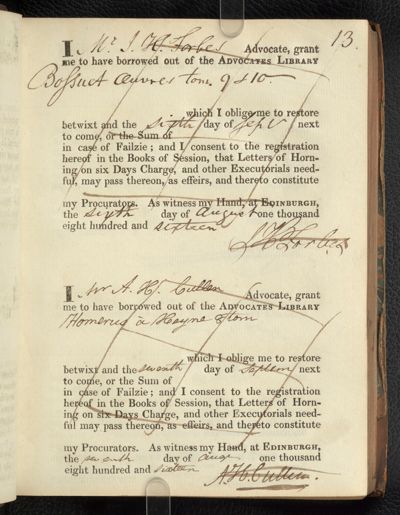 13.
I, Mr J. H. Forbes Advocate, grant
me to have borrowed out of the ADVOCATES LIBRARY
Bossuet Œuvres tom. 9 & 10.
which I oblige me to restore
betwixt and the sixth day of Sepr next
to come, or the Sum of
in case of Failzie; and I consent to the registration
hereof in the Books of Session, that Letters of Horn-
ing on six Days Charge, and other Executorials need-
ful, may pass thereon, as effeirs, and thereto constitute
my Procurators. As witness my Hand, at EDINBURGH,
the sixth day of August one thousand
eight hundred and sixteen
J H Forbes
I, Mr A. H. Cullen Advocate, grant
me to have borrowed out of the ADVOCATES LIBRARY
Homerus a Heyne tom
which I oblige me to restore
betwixt and the seventh day of Septem next
to come, or the Sum of
in case of Failzie; and I consent to the registration
hereof in the Books of Session, that Letters of Horn-
ing on six Days Charge, and other Executorials need-
ful may pass thereon, as effeirs, and thereto constitute
my Procurators. As witness my Hand, at EDINBURGH,
the seventh day of Augt one thousand
eight hundred and sixteen
A H Cullen.